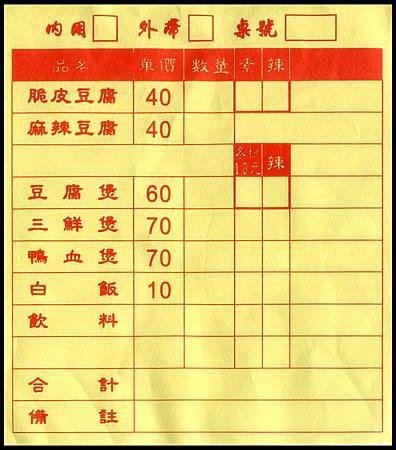 內用 外帶 桌號
品名 單價 數量 素 辣
脆皮豆腐 40
麻辣豆腐 40
冬粉10元 辣
豆腐煲 60
三鮮煲 70
鴨血煲 70
白飯 10
飲料
合計
備註